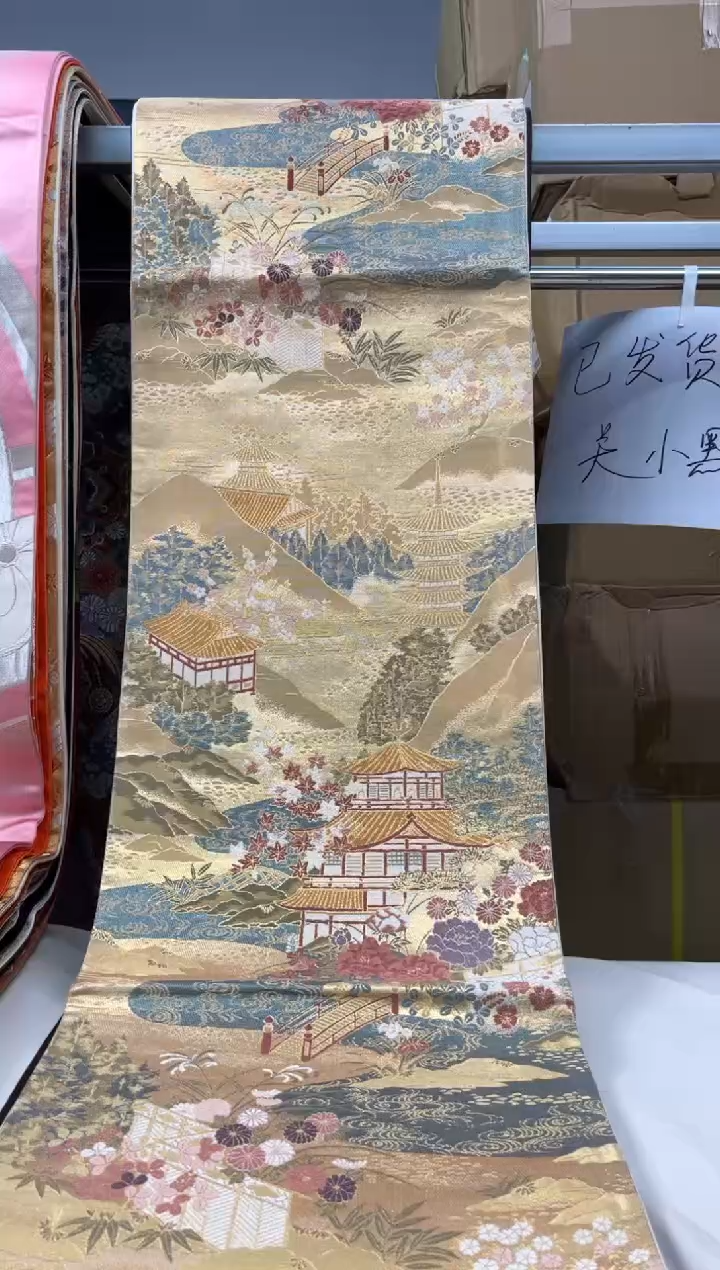 已发货
关小黑